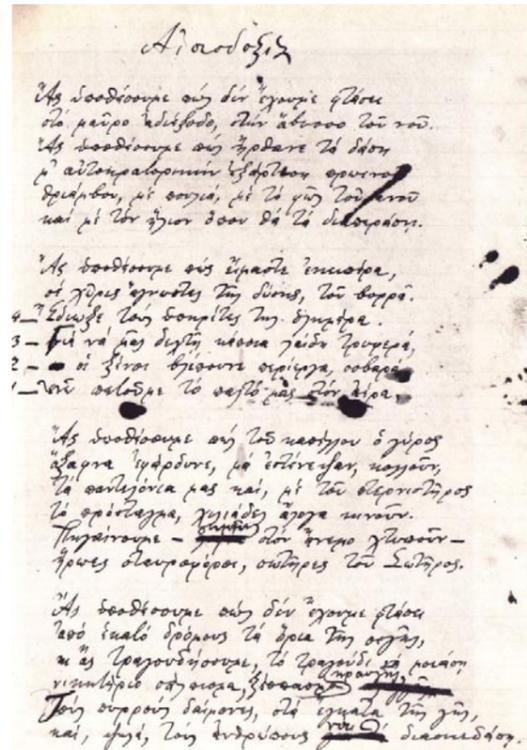 Αἰσιοδοξία
Ἂς ὑποθέσουμε πὼς δὲν ἔχουμε φτάσει
στὸ μαῦρο ἀδιέξοδο, στὴν ἄβυσσο τοῦ νοῦ.
Ἂς ὑποθέσουμε πὼς ἤρθανε τὰ δάση
μ' αὐτοκρατορικὴν ἐξάρτηση πρωινοῦ
θριάμβου, μὲ πουλιά, μὲ τὸ φῶς τοῦ
καὶ μὲ τὸν ἥλιον ὅπου θὰ τὰ διαπεράση.
Ἂς ὑποθέσουμε πὼς εἴμαστε ἐκεῖ πέρα,
σὲ χῶρες ἄγνωστες τῆς δύσης, τοῦ βορρᾶ.
4 – Ἔδιωξε τοὺς ὑπηρέτες της ὁλημέρα.
3 – Γιὰ νὰ μᾶς δεχτῆ κάποια λαίδη τρυφερά,
2 – οἱ ξένοι βλέπουνε περίεργα, σοβαρά
1 – πετοῦμε τὸ παλτό μας στὸν ἀέρα
Ἂς ὑποθέσουμε πὼς τοῦ καπέλλου ὁ γύρος
ἄξαφνα ἐφάρδυνε, μὰ ἐστένεψαν, κολλοῦν,
τὰ παντελόνια μας καί, μὲ τοῦ πτερνιστῆρος
τὸ πρόσταγμα, χιλιάδες ἄλογα κινοῦν.
Πηγαίνουμε – στὸν ἄνεμο χτυποῦν –
ἥρωες σταυροφόροι, σωτῆρες τοῦ Σωτῆρος.
Ἂς ὑποθέσουμε πὼς δὲν ἔχουμε φτάσει
ἀπὸ ἑκατὸ δρόμους τὰ ὅρια τῆς σιγῆς,
κι ἂς τραγουδήσουμε, τὸ τραγούδι νὰ μοιάση
κραυγῆς
νικητήριο σάλπισμα, ξέσπασμα
Τοὺς πυρροὺς δαίμονες, στὰ ἔγκατα τῆς γῆς,
καί, ψηλά, τοὺς ἀνθρώπους διασκεδάση.